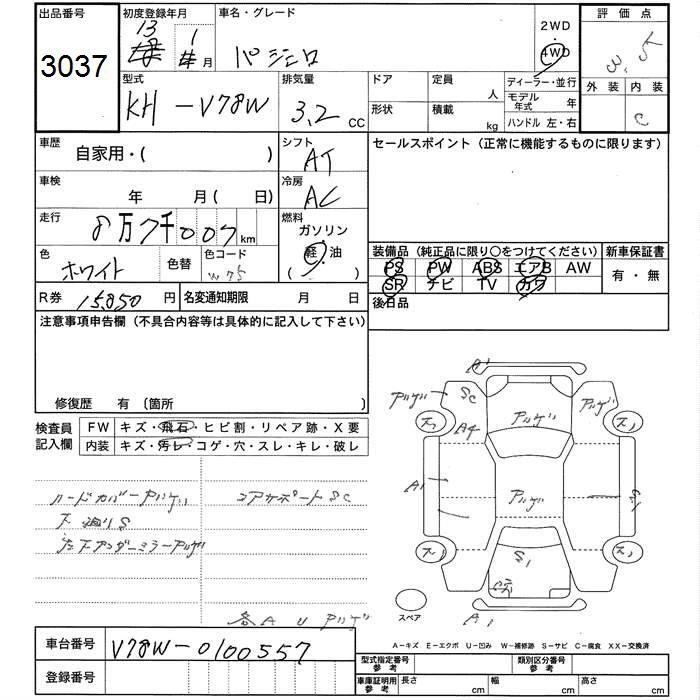 出品番号 初度登録年月 車名・グレード 2WD 評価点
3037 13年 1月 パジェロ 4WD 3.5
型式 排気量 ドア 定員 人 ディーラー・並行 外装 内装
KH-V78W 3.2 CC 形状 積載 kg モデル年式 年 C
ハンドル 左・右
車歴 自家用・( ) シフト AT セールスポイント (正常に機能するものに限ります)
車検 年 月( 日) 冷房 AC
走行 8万7千007km 燃料 ガソリン
色 ホワイト 色替 色コード W75 軽・油 ( )
装備品 (純正品に限り○をつけてください) 新車保証書
PS PW ABS エアB AW 有・無
SR ナビ TV カワ
R券 15,850円 名変通知期限 月 日 後日品
注意事項申告欄 (不具合内容等は具体的に記入して下さい)
修復歴 有 〔箇所 〕
検査員記入欄 FW キズ・飛石・ヒビ割・リペア跡・X要
内装 キズ・汚レ・コゲ・穴・スレ・キレ・破レ
ハードカバーアリゲ コアサポートSC
下廻りS
左下アンダーミラーアリゲ
各A U アリゲ
A1
アリゲ SC アリゲ
A4 アリゲ
A1 アリゲ S1
S1
スペア A1
A-キズ E-エクボ U-凹み W-補修跡 S-サビ C-腐食 XX-交換済
車台番号 V78W-0100557
登録番号
型式指定番号 参考 類別区分番号 参考
車庫証明用 参考 長さ cm 幅 cm 高さ cm